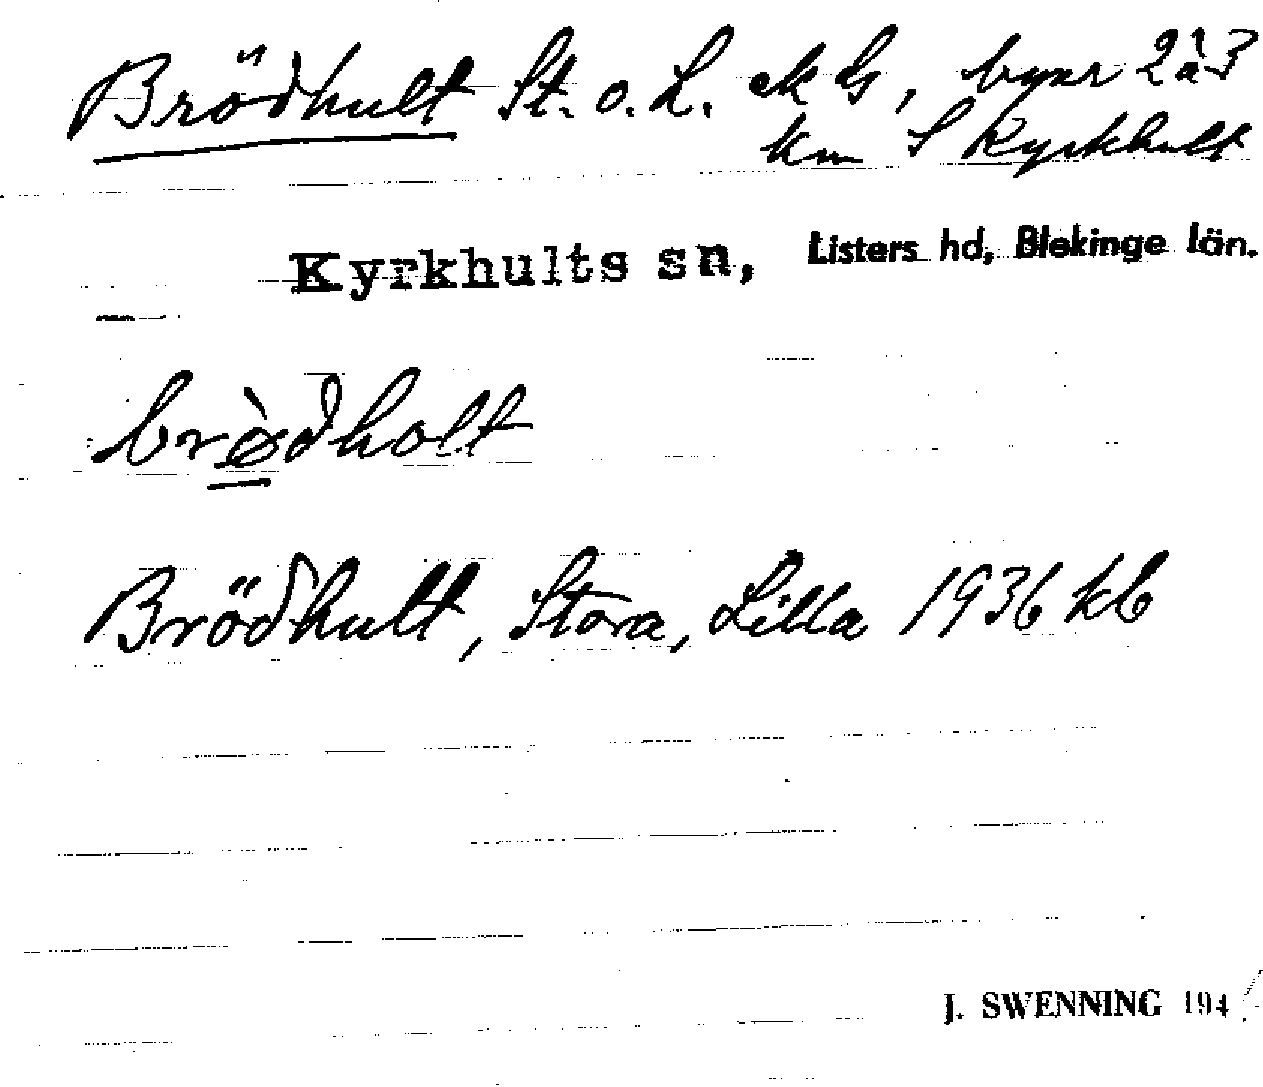 Brödhult St. o. L. ek ls, byar 2 à 3
km S Kyrkhult
Kyrkhults sn, Listers hd, Blekinge län.
brø̀dholt
Brödhult, Stora, Lilla 1936 kb
J. SWENNING 194